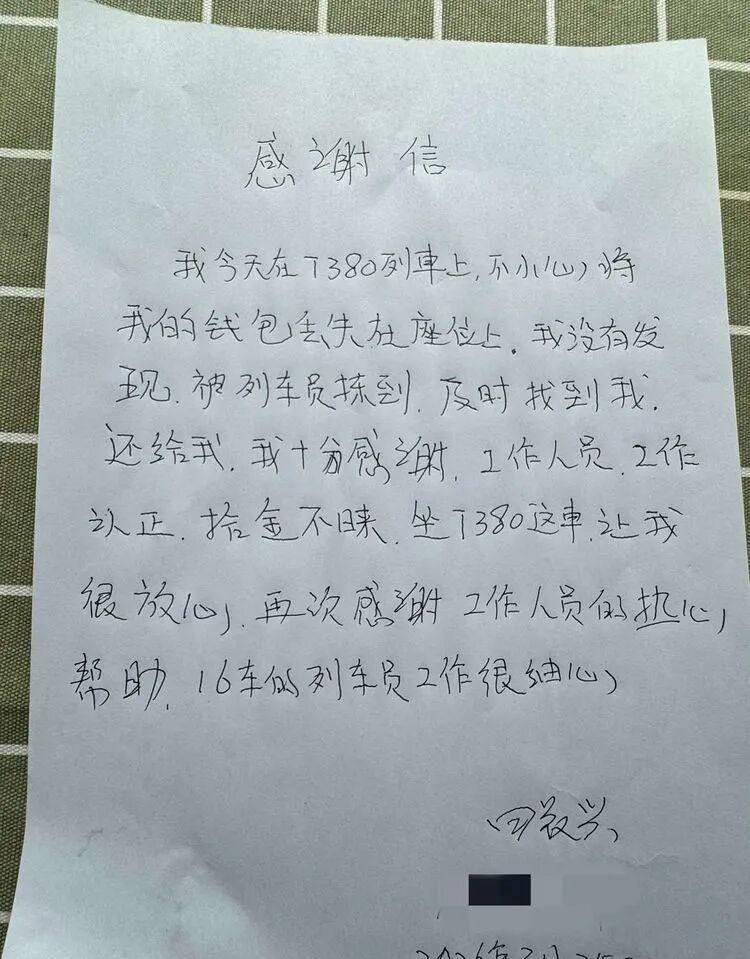 感谢信
我今天在T380列車上,不小心将
我的钱包丢失在座位上.我没有发
现.被列车员拣到.及时找到我.
还给我.我十分感谢.工作人员.工作
认正.拾金不昧.坐T380这車.让我
很放心,再次感谢工作人员的热心,
帮助.16车的列车员工作很细心